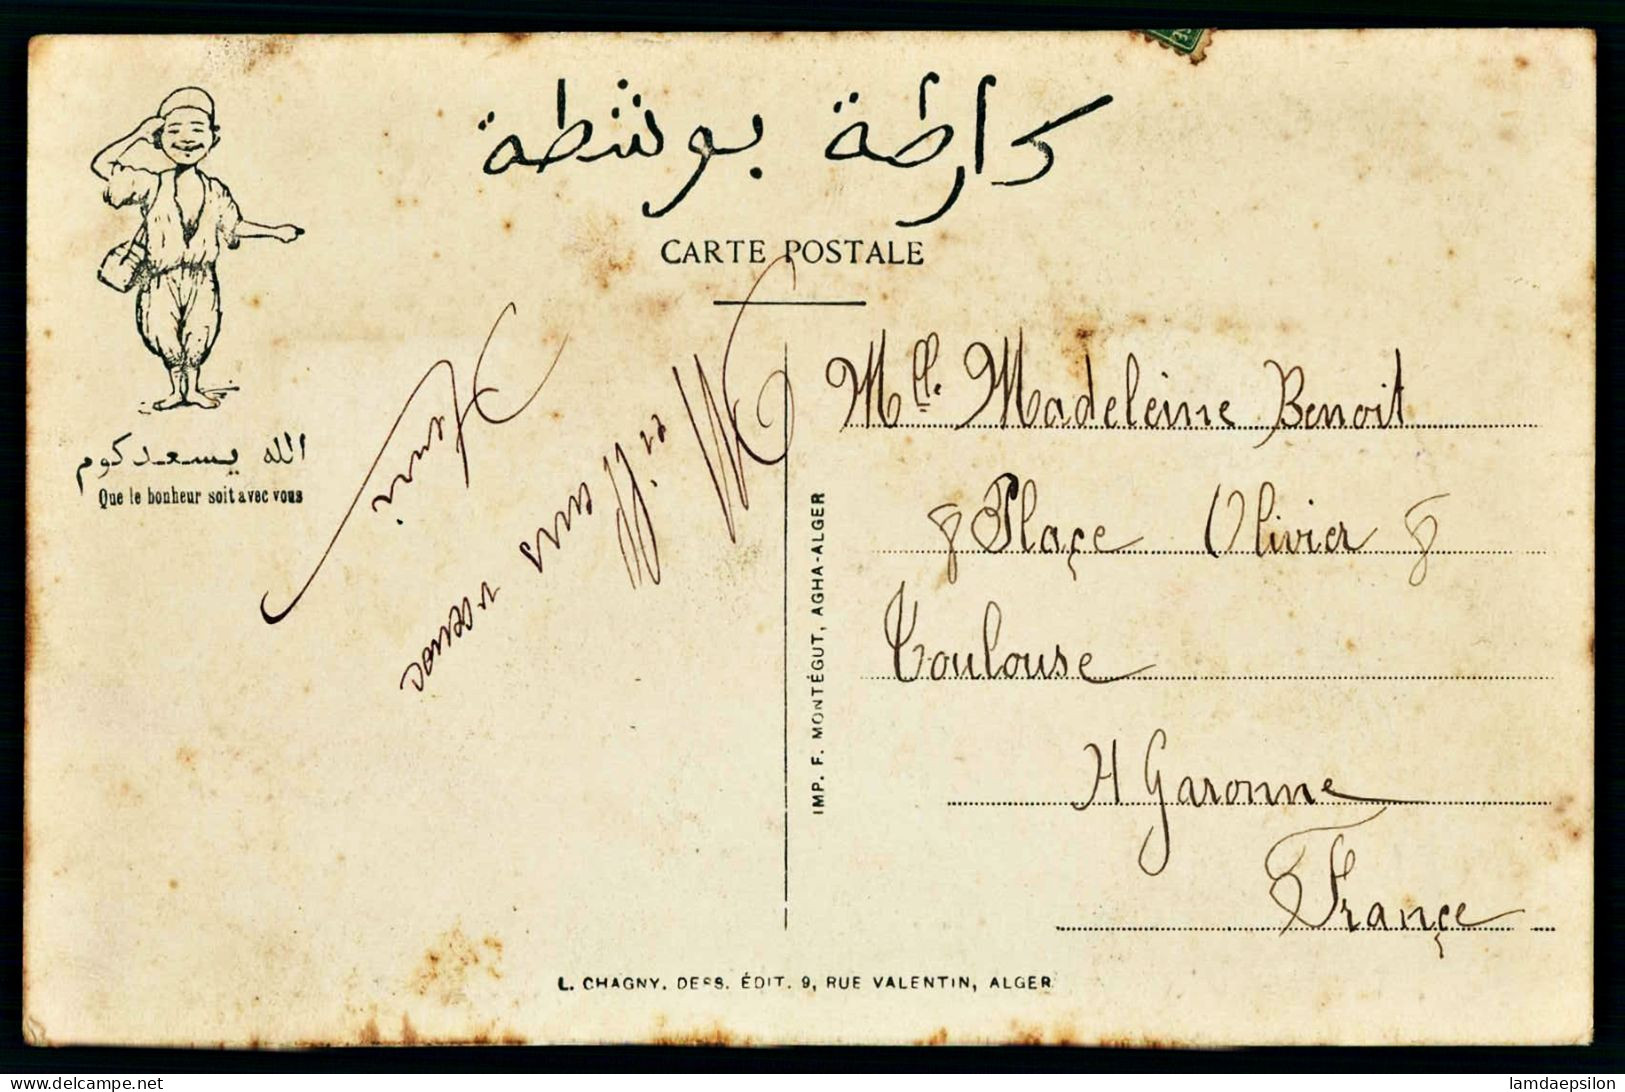 كارطة بوشطة
CARTE POSTALE
الله يسعدكوم
Que le bonheur soit avec vous
Mille
douss
Henri
Mlle. Madeleine Benoit
8 Plaçe Olivier 8
Toulouse
H Garonne
Françe
IMP. F. MONTÉGUT, AGHA-ALGER
L. CHAGNY. DESS. ÉDIT. 9, RUE VALENTIN, ALGER
delcampe.net
lamdaepsilon